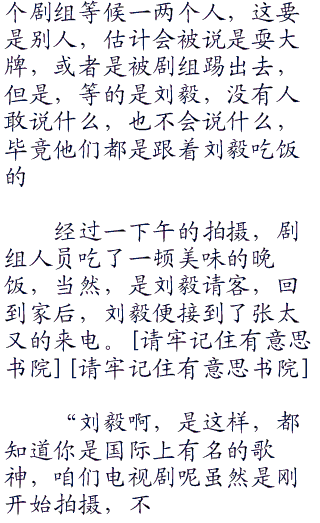 个剧组等候一两个人，这要
是别人，估计会被说是耍大
牌，或者是被剧组踢出去，
但是，等的是刘毅，没有人
敢说什么，也不会说什么，
毕竟他们都是跟着刘毅吃饭
的
经过一下午的拍摄，剧
组人员吃了一顿美味的晚
饭，当然，是刘毅请客，回
到家后，刘毅便接到了张太
又的来电。[请牢记住有意思
书院] [请牢记住有意思书院]
“刘毅啊，是这样，都
知道你是国际上有名的歌
神，咱们电视剧呢虽然是刚
开始拍摄，不